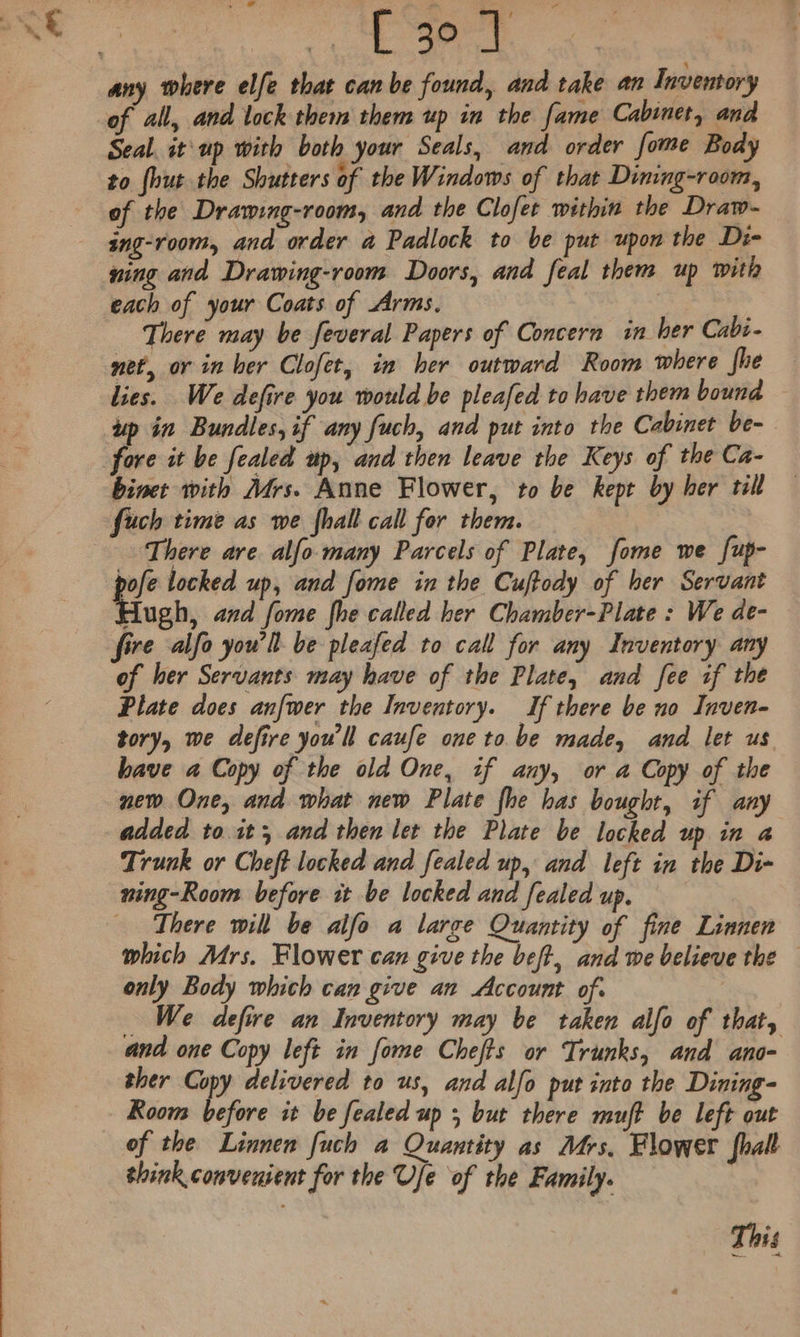 [ 30 ]
any where elſe that can be found, and take an Inventory
of all, and lock them them up in the ſame Cabinet, and
Seal it up with both your Seals, and order ſome Body
to ſhut the Shutters of the Windows of that Dining-room,
of the Drawing-room, and the Cloſet within the Draw-
ing-room, and order a Padlock to be put upon the Di-
ning and Drawing-room Doors, and ſeal them up with
each of your Coats of Arms.
There may be ſeveral Papers of Concern in her Cabi-
net, or in her Cloſet, in her outward Room where ſhe
lies. We deſire you would be pleaſed to have them bound
up in Bundles, if any ſuch, and put into the Cabinet be-
fore it be ſealed up, and then leave the Keys of the Ca-
binet with Mrs. Anne Flower, to be kept by her till
ſuch time as we ſhall call for them.
There are alſo many Parcels of Plate, ſome we ſup-
poſe locked up, and ſome in the Cuſtody of her Servant
Hugh, and ſome ſhe called her Chamber-Plate : We de-
ſire alſo you'll be pleaſed to call for any Inventory any
of her Servants may have of the Plate, and ſee if the
Plate does anſwer the Inventory. If there be no Inven-
tory, we deſire you'll cauſe one to be made, and let us
have a Copy of the old One, if any, or a Copy of the
new One, and what new Plate ſhe has bought, if any
added to it; and then let the Plate be locked up in a
Trunk or Cheſt locked and ſealed up, and left in the Di-
ning-Room before it be locked and ſealed up.
There will be alſo a large Quantity of fine Linnen
which Mrs. Flower can give the beſt, and we believe the
only Body which can give an Account of.
We deſire an Inventory may be taken alſo of that,
and one Copy left in ſome Cheſts or Trunks, and ano-
ther Copy delivered to us, and alſo put into the Dining-
Room before it be ſealed up ; but there muſt be left out
of the Linnen ſuch a Quantity as Mrs. Flower ſhall
think convenient for the Uſe of the Family.
This